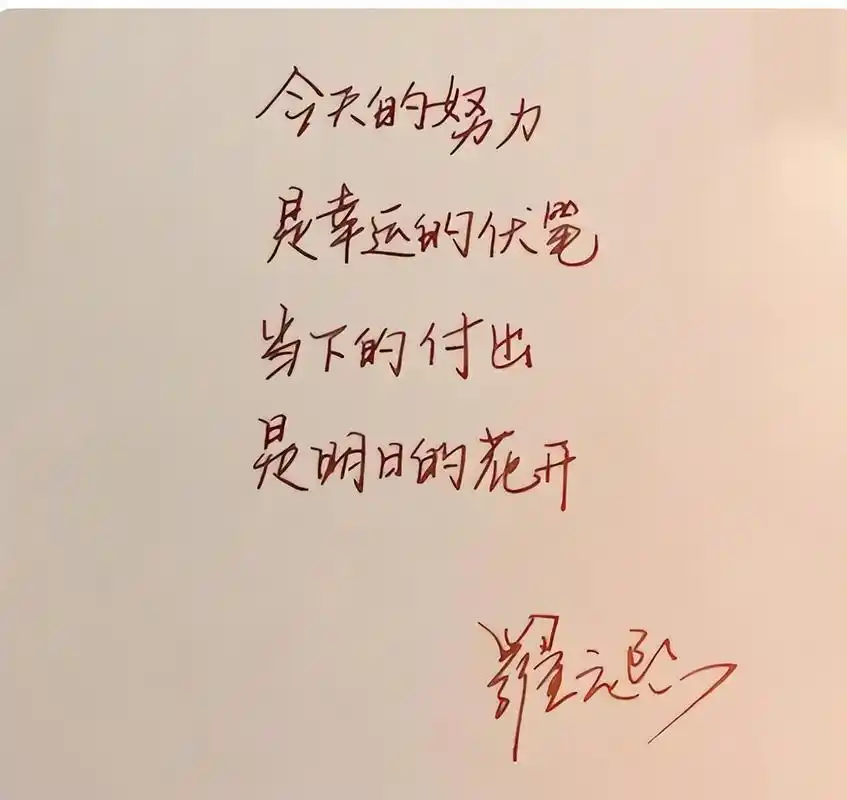 今天的努力
是幸运的伏笔
当下的付出
是明日的花开